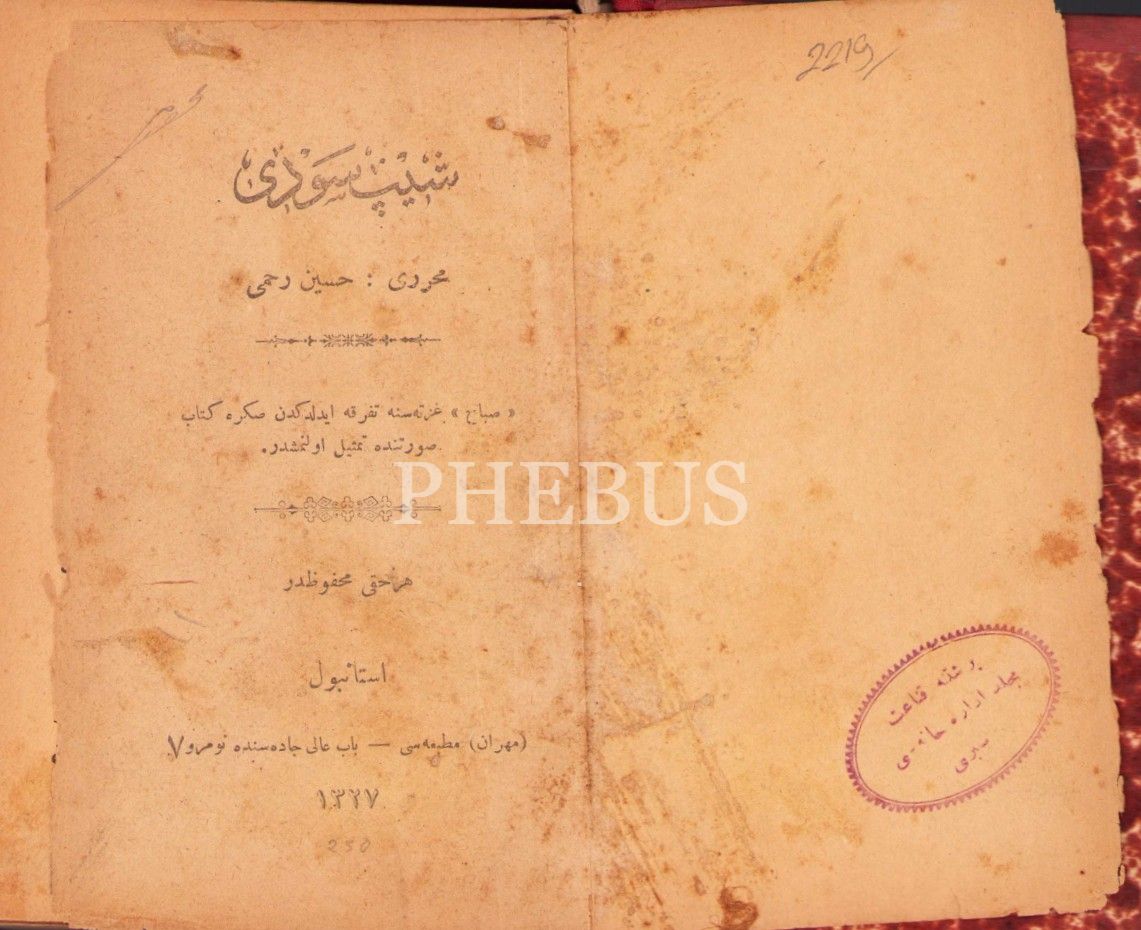 شیپ سودی
محرری : حسین رحمی
« صباح » غزته‌سنه تفرقه ایدلدكدن صكره كتاب
صورتنده تمثیل اولنمشدر.
هر حقی محفوظدر
استانبول
(مهران) مطبعه‌سی — باب عالی جاده‌سنده نومرو ٧
١٣٢٧
250
2219
PHEBUS
قناعت
اداره خانه‌سی